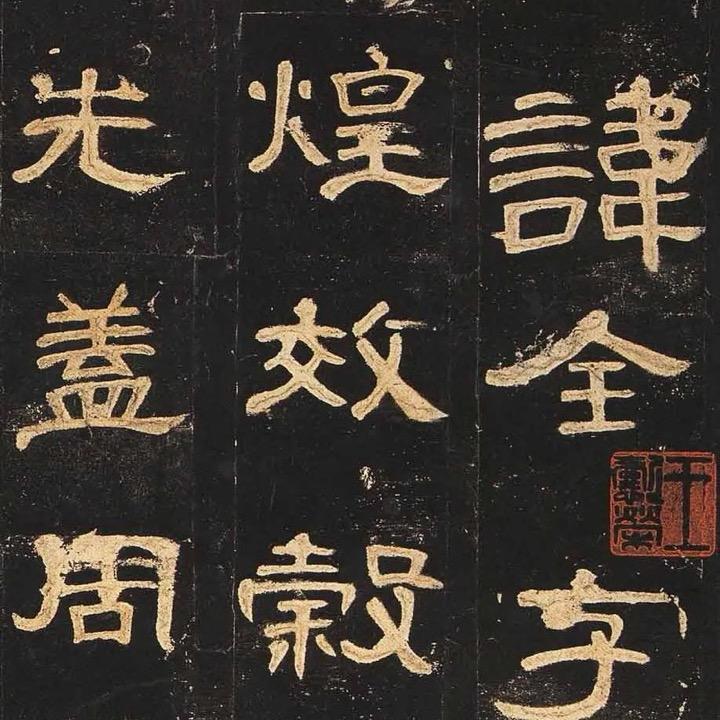 諱全字
煌效穀
先盖周